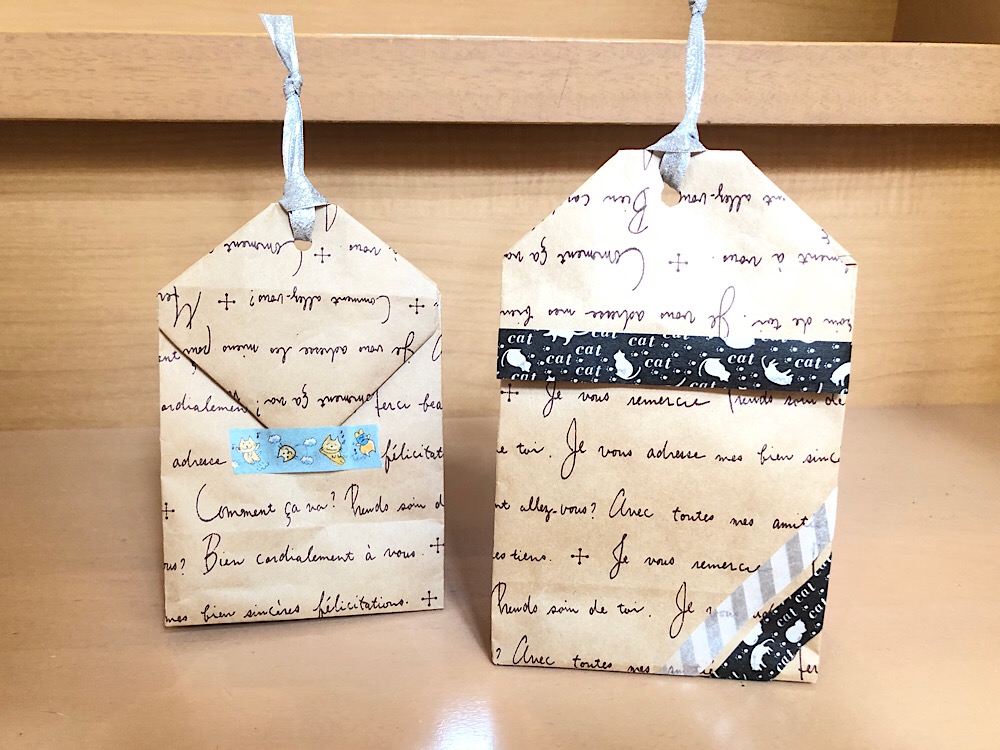 Comment
à vous.
Comment allez-vous?
Je vous adresse les miens
Comment ça va?
cordialement
adresse
félicitat
Comment ça va? Prends soin d
us? Bien cordialement à vous.
mes bien sincères félicitations.
allez-vous
Bien cor
Comment ça va
à vous.
soin de toi. Je vous adresse mes bien
cat cat cat cat cat cat
Je vous remercie Prends soin de
e toi. Je vous adresse mes bien sinc
nt allez-vous? Avec toutes mes amit
es tiens. Je vous remerc
Prends soin de toi. Je
? Avec toutes mes
cat cat cat cat